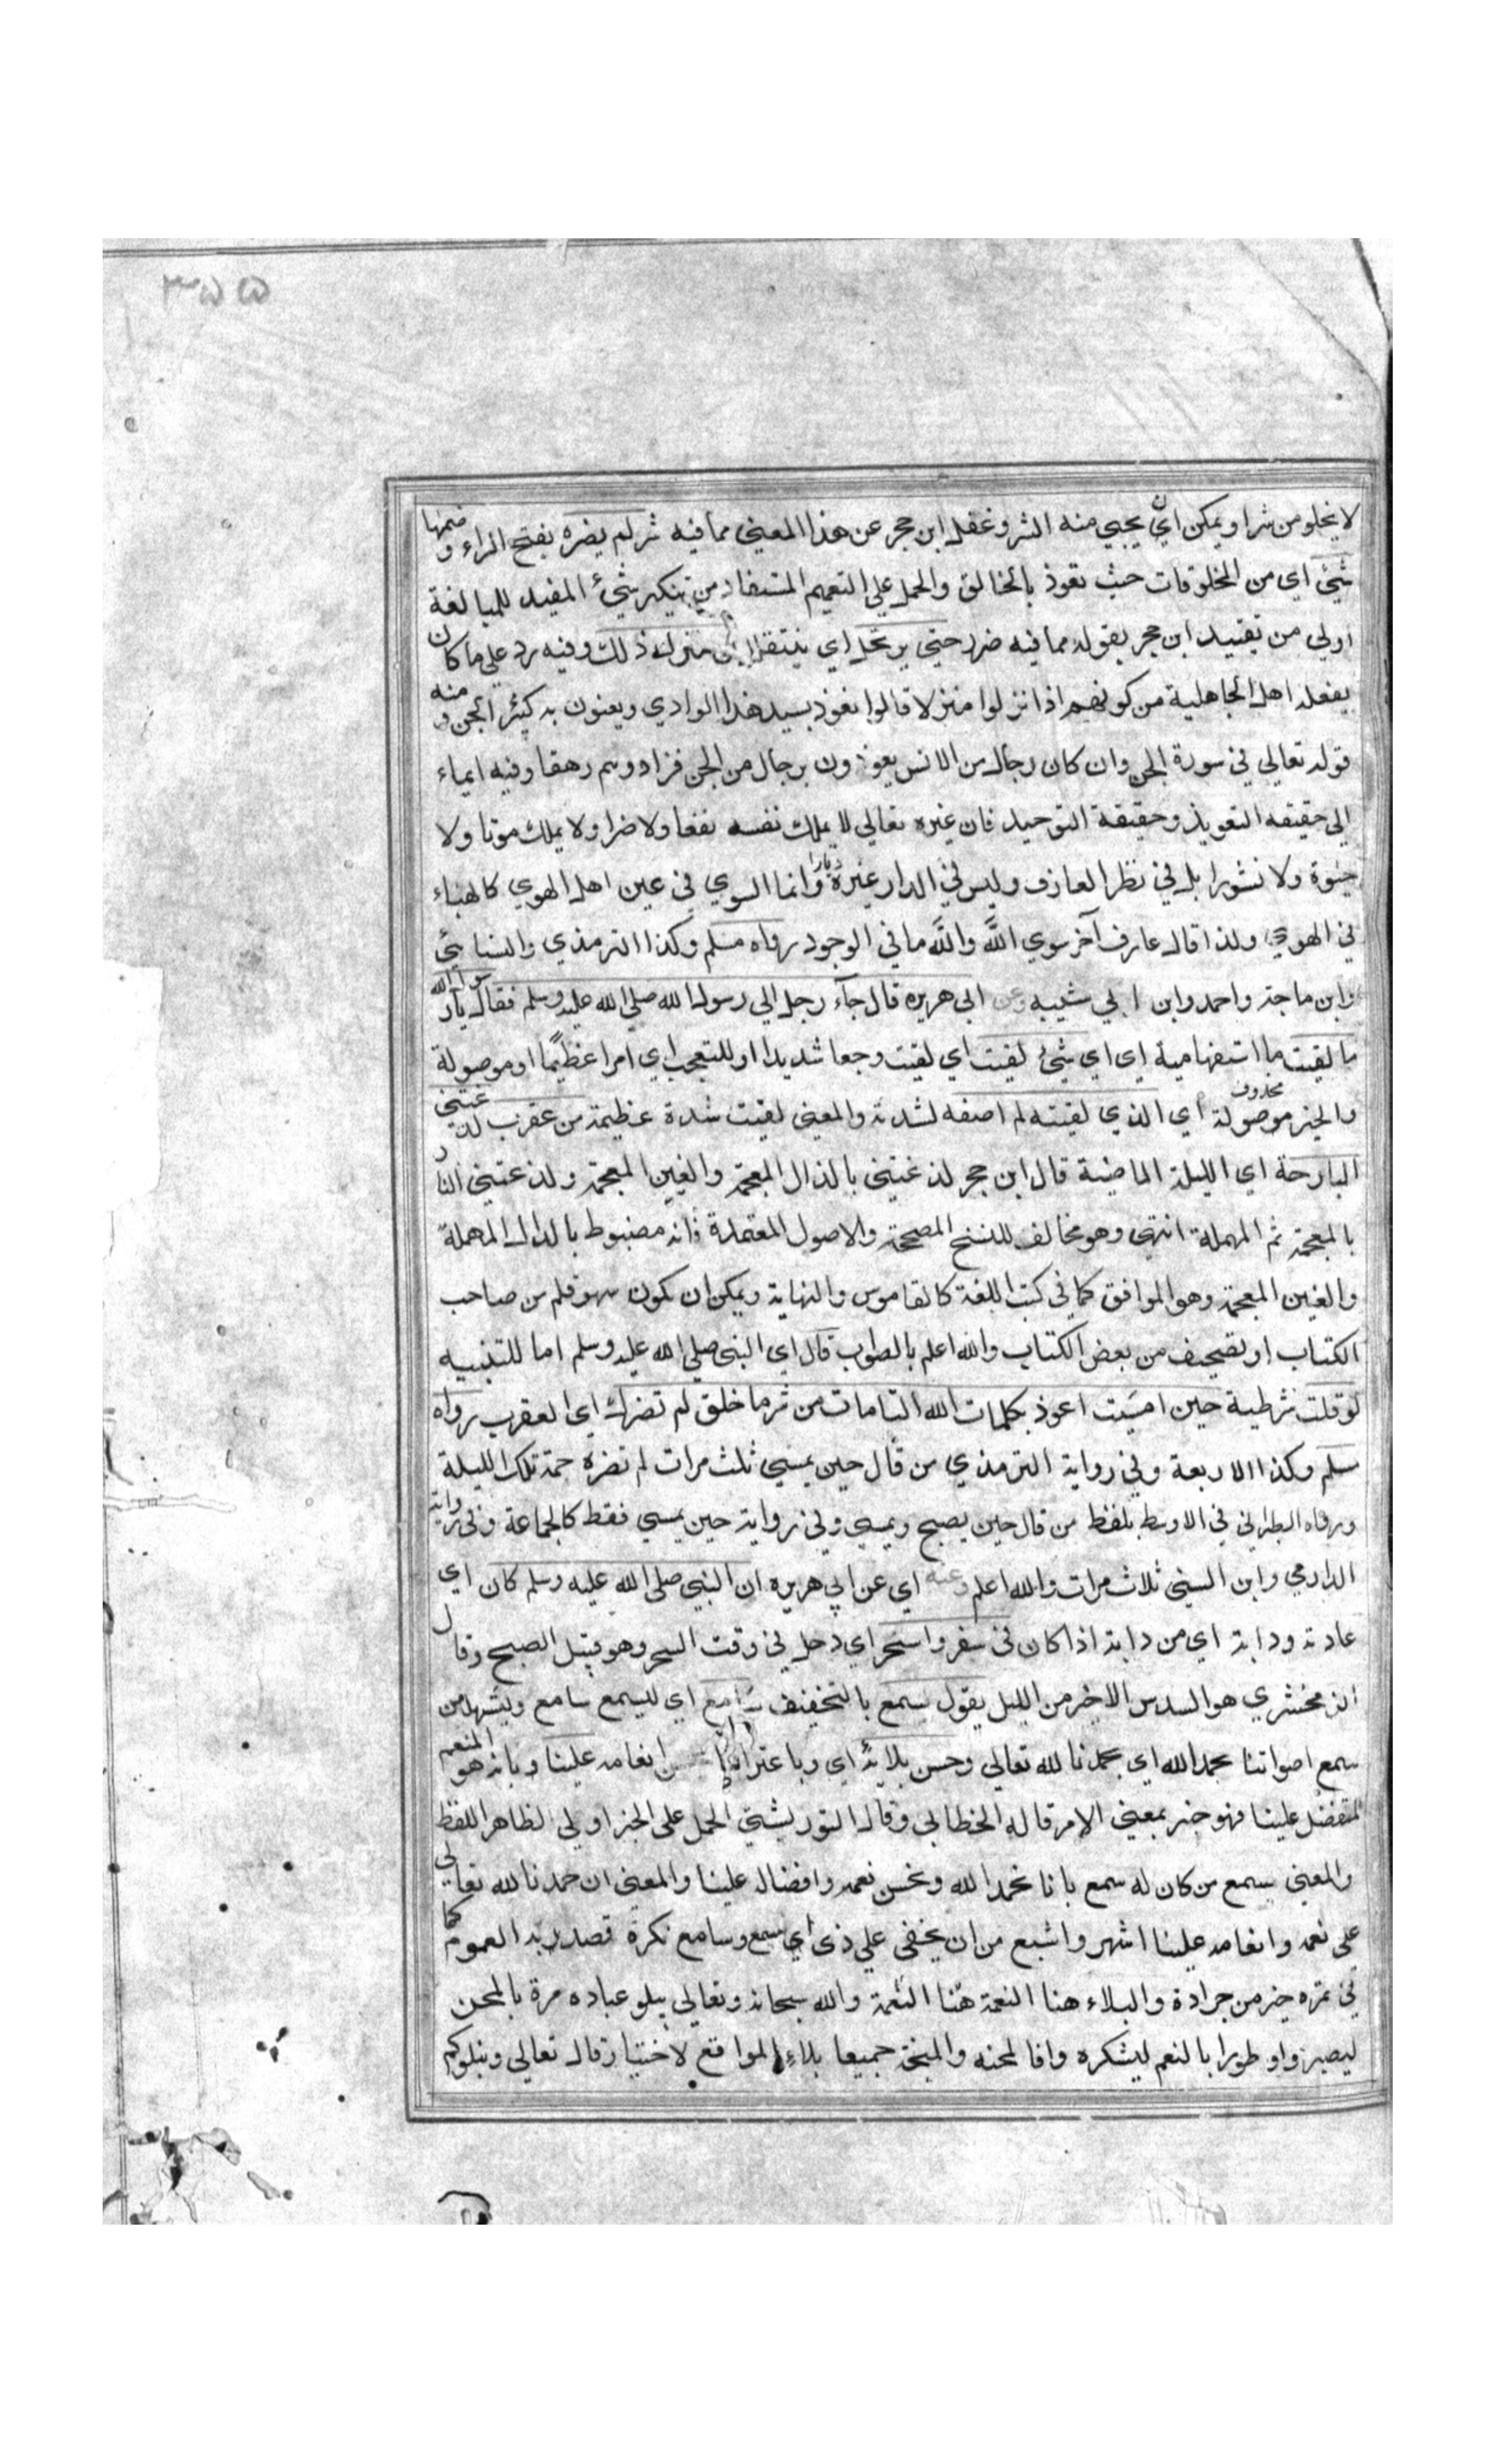 ٣٥٥
لا يخلو من شر او يمكن اي ان يجيى منه الشر وغفل ابن حجر عن هذا المعنى مما فيه شر لم يضره بفتح الراء وضمها
شئ اي من المخلوقات حيث تعوذ بالخالق والحمل على التعميم المستفاد من تنكير شئ المفيد للمبالغة
اولى من تقييد ابن حجر بقوله مما فيه ضرر حتى يرتحل اي ينتقل من منزله ذلك وفيه رد على ما كان
يفعله اهل الجاهلية من كونهم اذا نزلوا منزلا قالوا نعوذ بسيد هذا الوادي ويعنون به كبير الجن ومنه
قوله تعالي في سورة الجن وان كان رجال من الانس يعوذون برجال من الجن فزادوهم رهقا وفيه ايماء
الى حقيقه التعويذ وحقيقة التوحيد فان غيره تعالي لا يملك نفسه نفعا ولا ضرا ولا يملك موتا ولا
حيوة ولا نشورا بل في نظر العارف وليس في الدار غيره ديارا وانما السوي في عين اهل الهوي كالهباء
في الهوي ولذا قال عارف آخر سوي الله والله ما في الوجود رواه مسلم وكذا الترمذي والنسايئ
وابن ماجة واحمد وابن ابي شيبه وعن ابي هريره قال جآء رجل الي رسول الله صلى الله عليه وسلم فقال يا رسول الله
ما لقيت ما استفهامية اي اي شئ لقيت اي لقيت وجعا شديدا او للتعجب اي امرا عظيما او موصولة
والخبر محذوف موصولة اي الذي لقيته لم اصفه لشدته والمعنى لقيت شدة عظيمة من عقرب لدغتني
البارحة اي الليلة الماضية قال ابن حجر لذغتني بالذال المعجمة والغين المعجمة ولذعتني النار
بالمعجمة ثم المهملة انتهى وهو مخالف للنسخ المصححة والاصول المعتمدة فانه مضبوط بالدال المهملة
والغين المعجمة وهو الموافق كما في كتب اللغة كالقاموس والنهاية ويمكن ان يكون سهو قلم من صاحب
الكتاب او تصحيف من بعض الكتاب والله اعلم بالصواب قال اي النبي صلى الله عليه وسلم اما للتنبيه
لو قلت شرطية حين امسيت اعوذ بكلمات الله التامات من شر ما خلق لم تضرك اي العقرب رواه
مسلم وكذا الاربعة وفي رواية الترمذي من قال حين يمسي ثلث مرات لم تضره حمة تلك الليلة
ورواه الطبراني في الاوسط بلفظ من قال حين يصبح ويمسي وفي رواية حين يمسي فقط كالجماعة وفي رواية
الدارمي وابن السني ثلاث مرات والله اعلم وعنه اي عن ابي هريره ان النبي صلى الله عليه وسلم كان اي
عادته ودابه اي من دابه اذا كان في سفر واسحر اي دخل في وقت السحر وهو قبيل الصبح وقال
الزمخشري هو السدس الاخير من الليل يقول سمع بالتخفيف سامع اي ليسمع سامع ويشهد من
سمع اصواتنا بحمد الله اي بحمدنا لله تعالي وحسن بلائه اي وباعترافنا بحسن انعامه علينا وبانه هو المنعم
المتفضل علينا فهو خبر بمعنى الامر قاله الخطابي وقال التوربشتي الحمل على الخبر اولى لظاهر اللفظ
والمعنى سمع من كان له سمع بانا نحمد الله ونحسن نعمه وافضاله علينا والمعنى ان حمدنا لله تعالي
على نعمه وانعامه علينا اشهر واشيع من ان يخفى علي ذي اي سمع وسامع نكرة قصد به العموم كما
في تمره خير من جرادة والبلاء هنا النعمة هنا النعمة والله سبحانه وتعالي يبلو عباده مرة بالمحن
ليصبروا وطورا بالنعم ليشكره وافا لمحنه والمنحة جميعا بلاء لمواقع لاختبار قال تعالي ونبلوكم